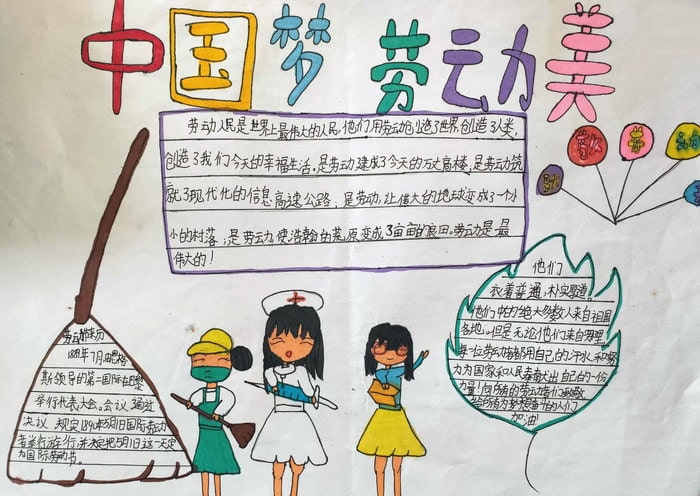 中国梦 劳动美
劳动人民是世界上最伟大的人民,他们用劳动创造了世界,创造了人类,
创造了我们今天的幸福生活。是劳动建成了今天的万丈高楼,是劳动筑
就了现代化的信息高速公路,是劳动,让伟大的地球变成了一个小
小的村落,是劳动使浩翰的荒原变成了亩亩的良田。劳动是最
伟大的!
劳动节来历
1889年7月,由恩格
斯领导的第二国际在巴黎
举行代表大会。会议通过
决议,规定1890年5月1日国际劳动
者举行游行,并决定把5月1日这一天定
为国际劳动节。
他们
衣着普通,朴实厚道。
他们中的绝大多数人来自祖国
各地。但是无论他们来自哪里
每一位劳动者都用自己的汗水和努
力为国家和人民奉献出自己的一份
力量!向所有的劳动者们致敬
给所有为梦想奋斗的人们
加油!